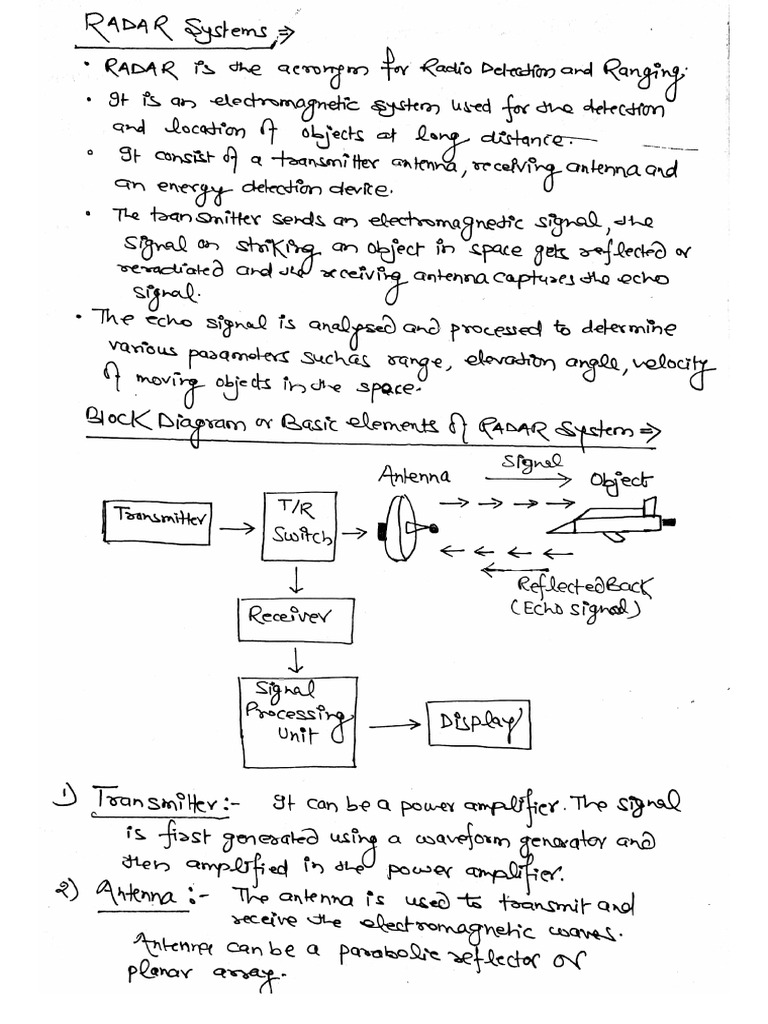 RADAR Systems ⇒
• RADAR is the acronym for Radio Detection and Ranging.
• It is an electromagnetic system used for the detection
and location of objects at long distance.
• It consist of a transmitter antenna, receiving antenna and
an energy detection device.
• The transmitter sends an electromagnetic signal, the
signal on striking an object in space gets reflected or
reradiated and the receiving antenna captures the echo
signal.
• The echo signal is analysed and processed to determine
various parameters such as range, elevation angle, velocity
of moving objects in the space.
Block Diagram or Basic elements of RADAR System ⇒
Signal
Antenna
Object
Transmitter
T/R
Switch
Reflected Back
(Echo signal)
Receiver
Signal
Processing
Unit
Display
1) Transmitter:- It can be a power amplifier. The signal
is first generated using a waveform generator and
then amplified in the power amplifier.
2) Antenna:- The antenna is used to transmit and
receive the electromagnetic waves.
Antenna can be a parabolic reflector or
planar array.